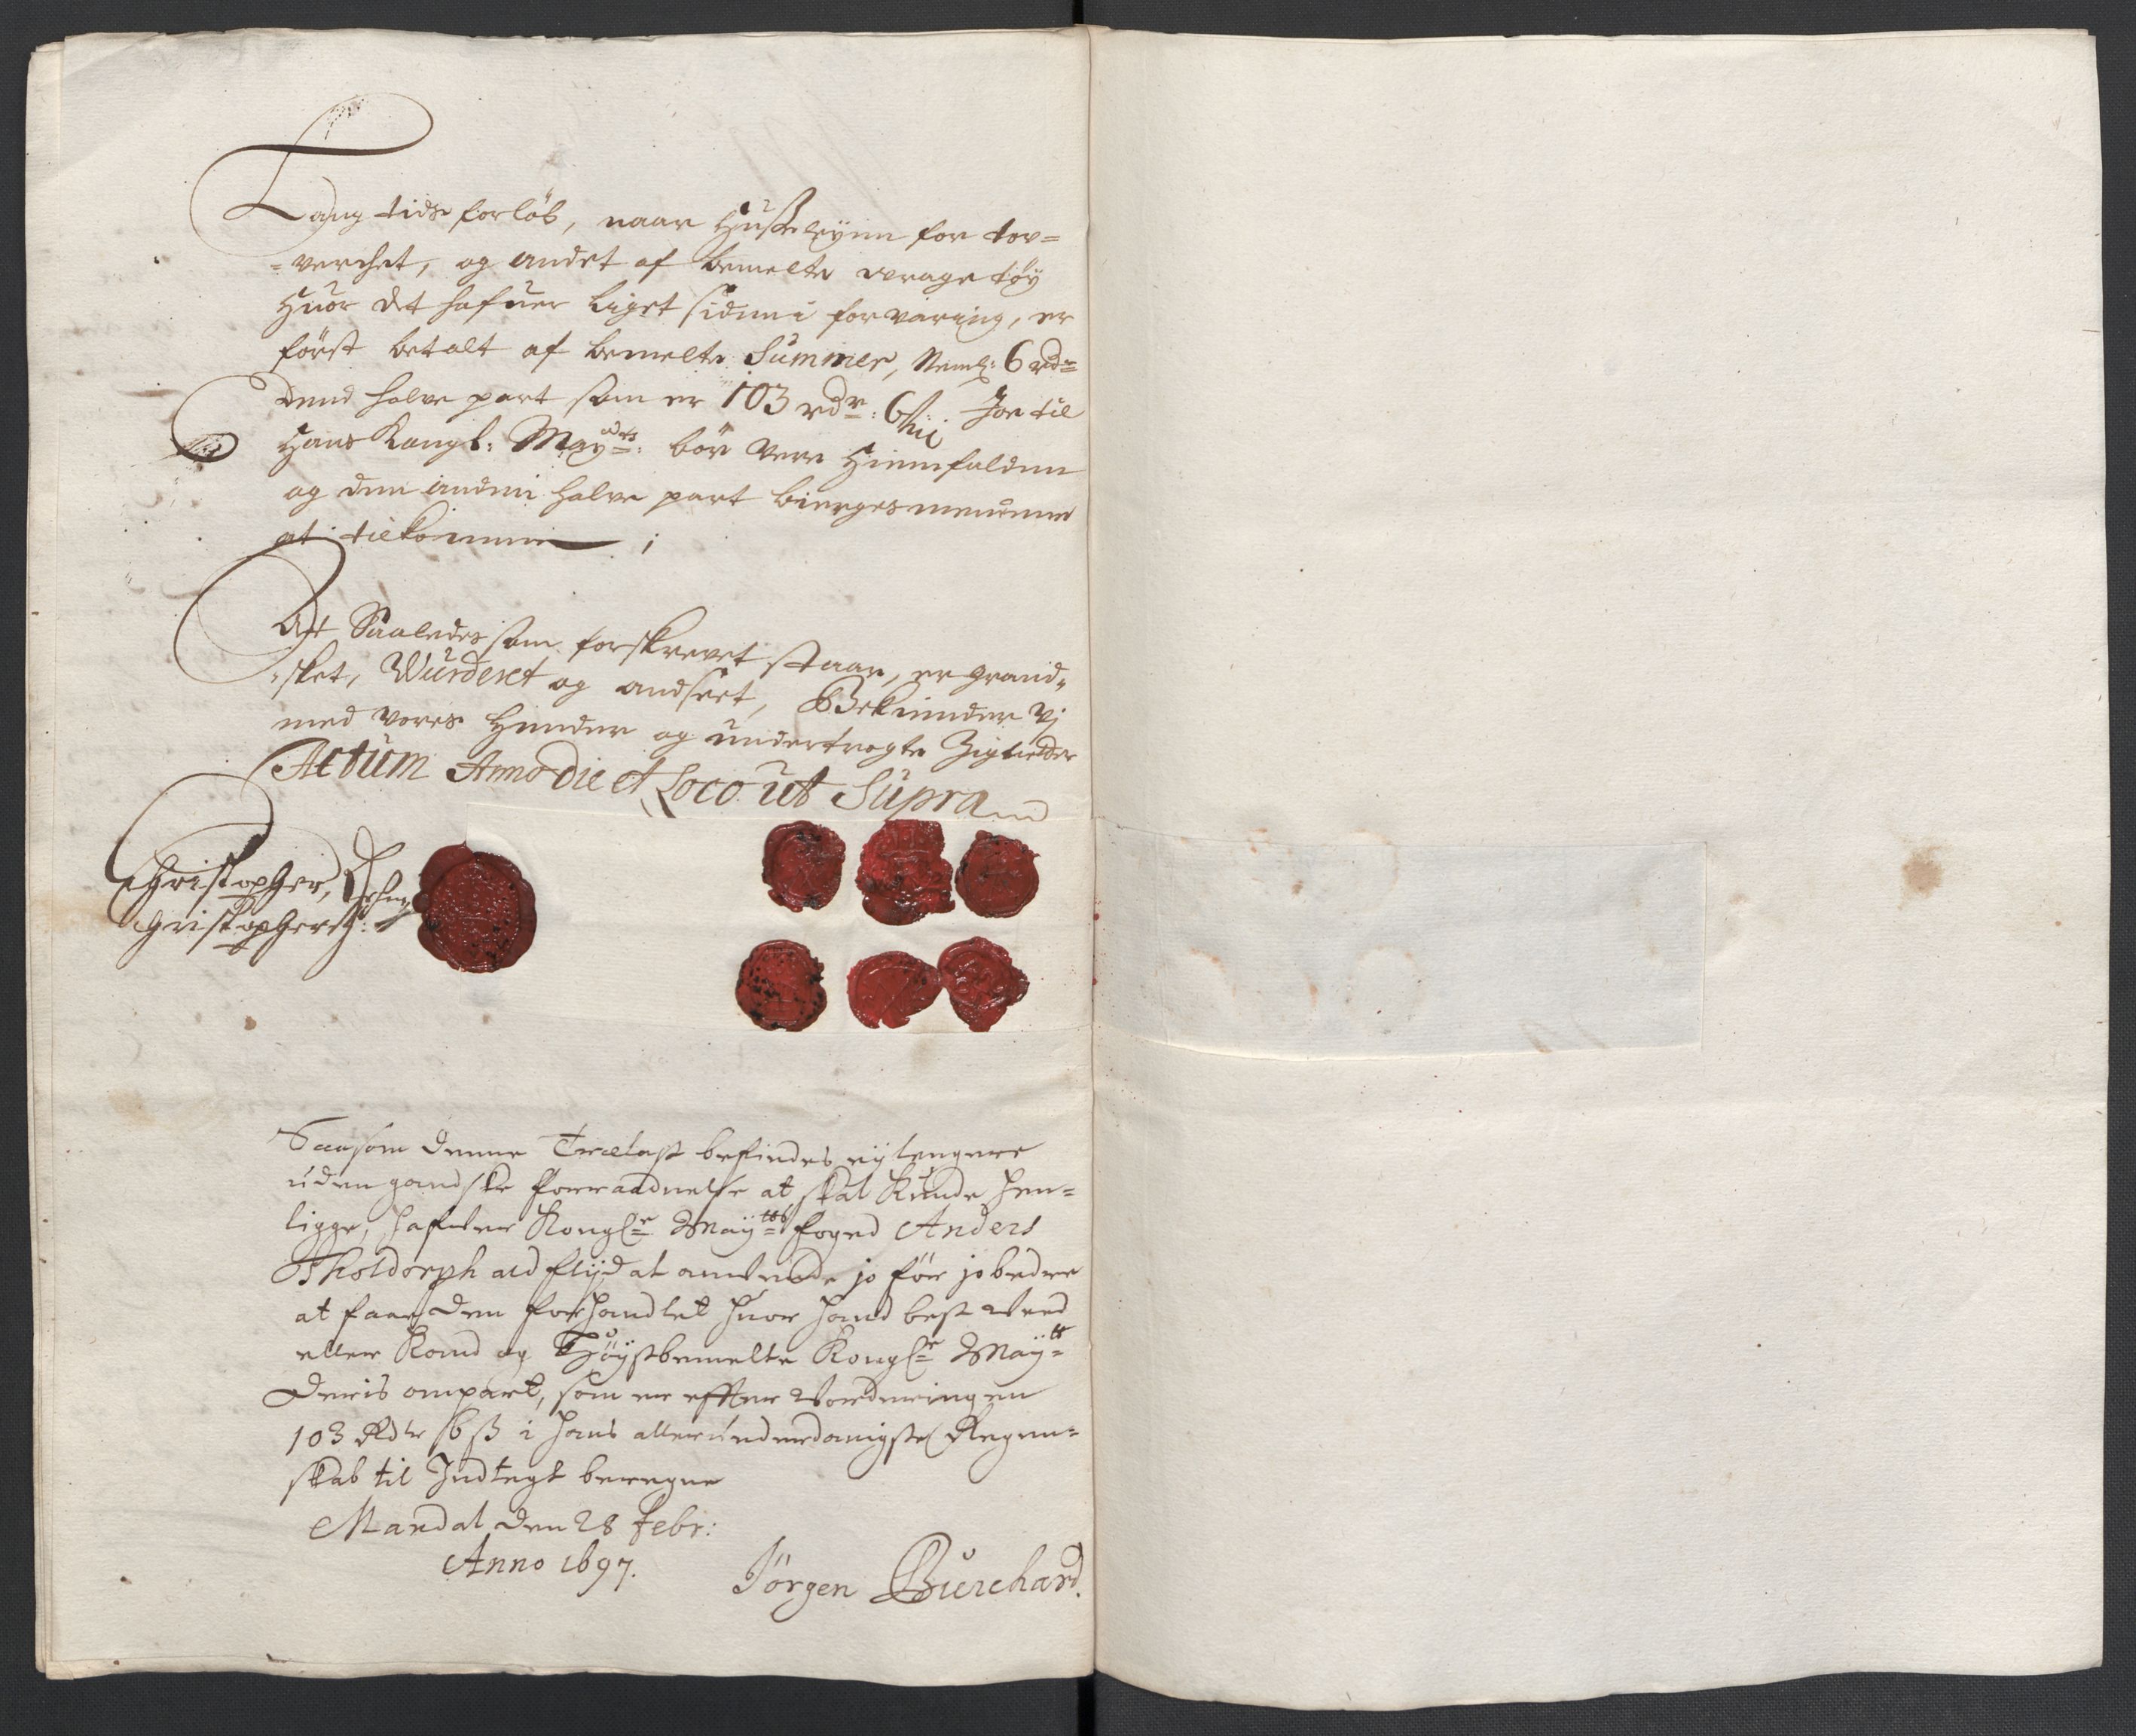 Lang tids forlöb, naar Huusleÿen for tov=
=verchet, og andet af bemelte vragetöÿ
Huor det hafuer liget siden i forvaring, er
först betalt af bemelte Summer, Neml: 6 rdr
dend halve part som er 103 rdr: 6 til
Hans Kongl: Mayts: bör vere Hiemfalden
og den anden halve part biergesmendene
at tilkomme
At Saaledes som forskrevet staar, er grand=
=sket, Wurderet og andseet, Bekiender Vj
med vores Hender og undertrögte Zigneter
Actum Anno die et Loco ut Supra
Christopher
Christophers:
Saasom denne Trælast befindes eÿ lengere
uden gandske forraadnelse at skal kunde hen=
ligge, hafver Kongl: Maÿtts foged Anders
Tholdorph ald flÿd at anvende jo för jo bedre
at faa den forhandlet huor hand best veed
eller kand og Höÿstbemelte Kongl: Maÿtt
Deris ompart, som er effter Vorderingen
103 Rdr 6 ß i hans allerunderdanigste Regen=
skab til Indtegt beregne
Mandal den 28 Febr:
Anno 1697.
Jörgen Burchard.